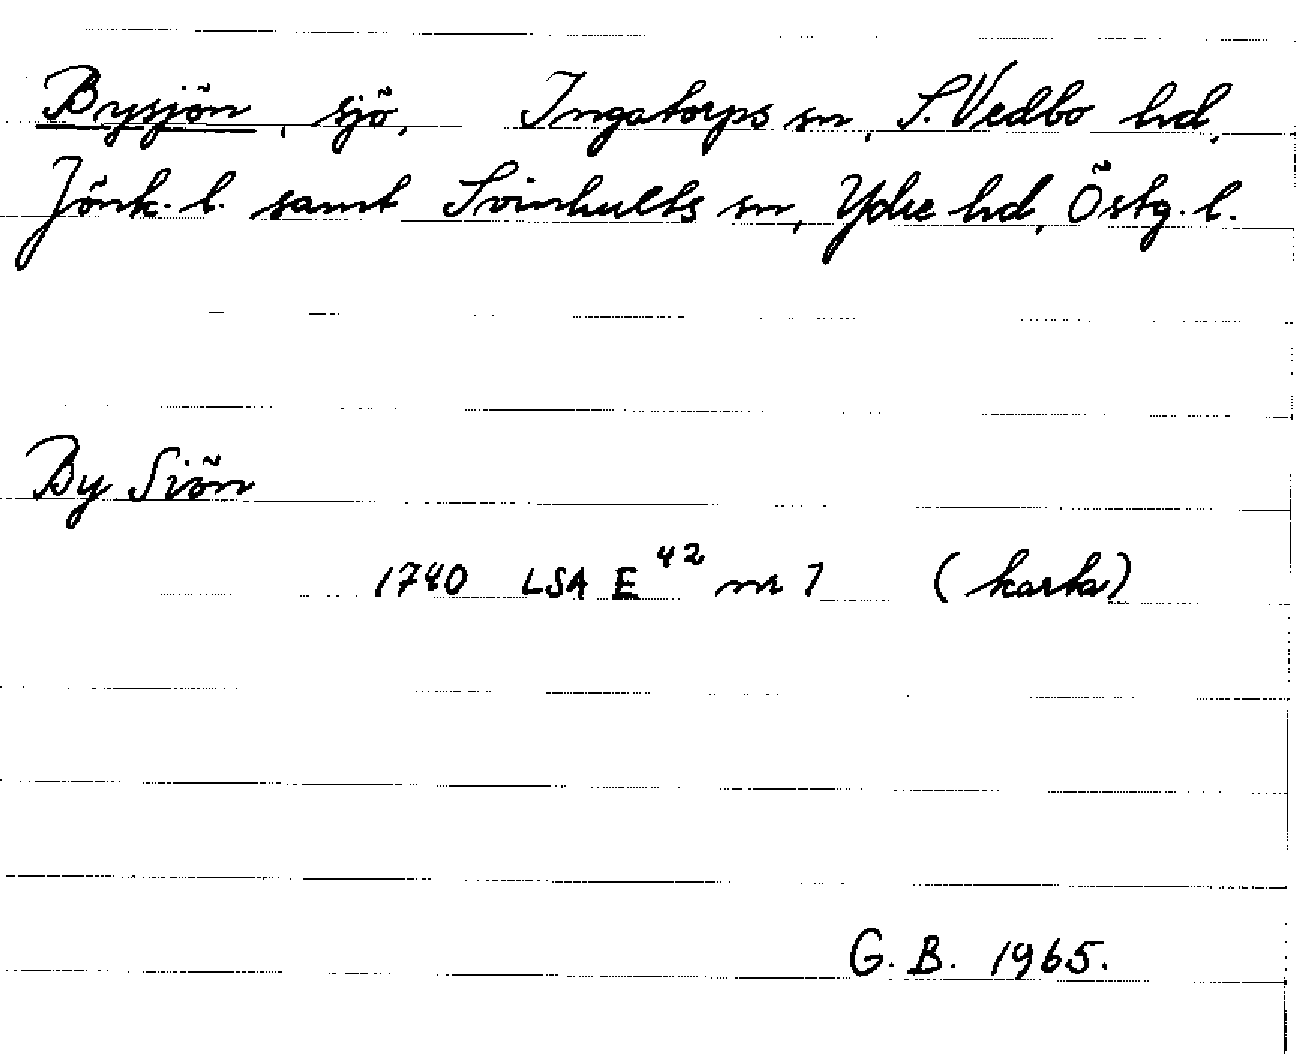 Bysjön, sjö, Ingatorps sn, S. Vedbo hd,
Jönk. l. samt Svinhults sn, Ydre hd, Östg. l.
By Siön
1740 LSA E 42 nr 7 (karta)
G. B. 1965.